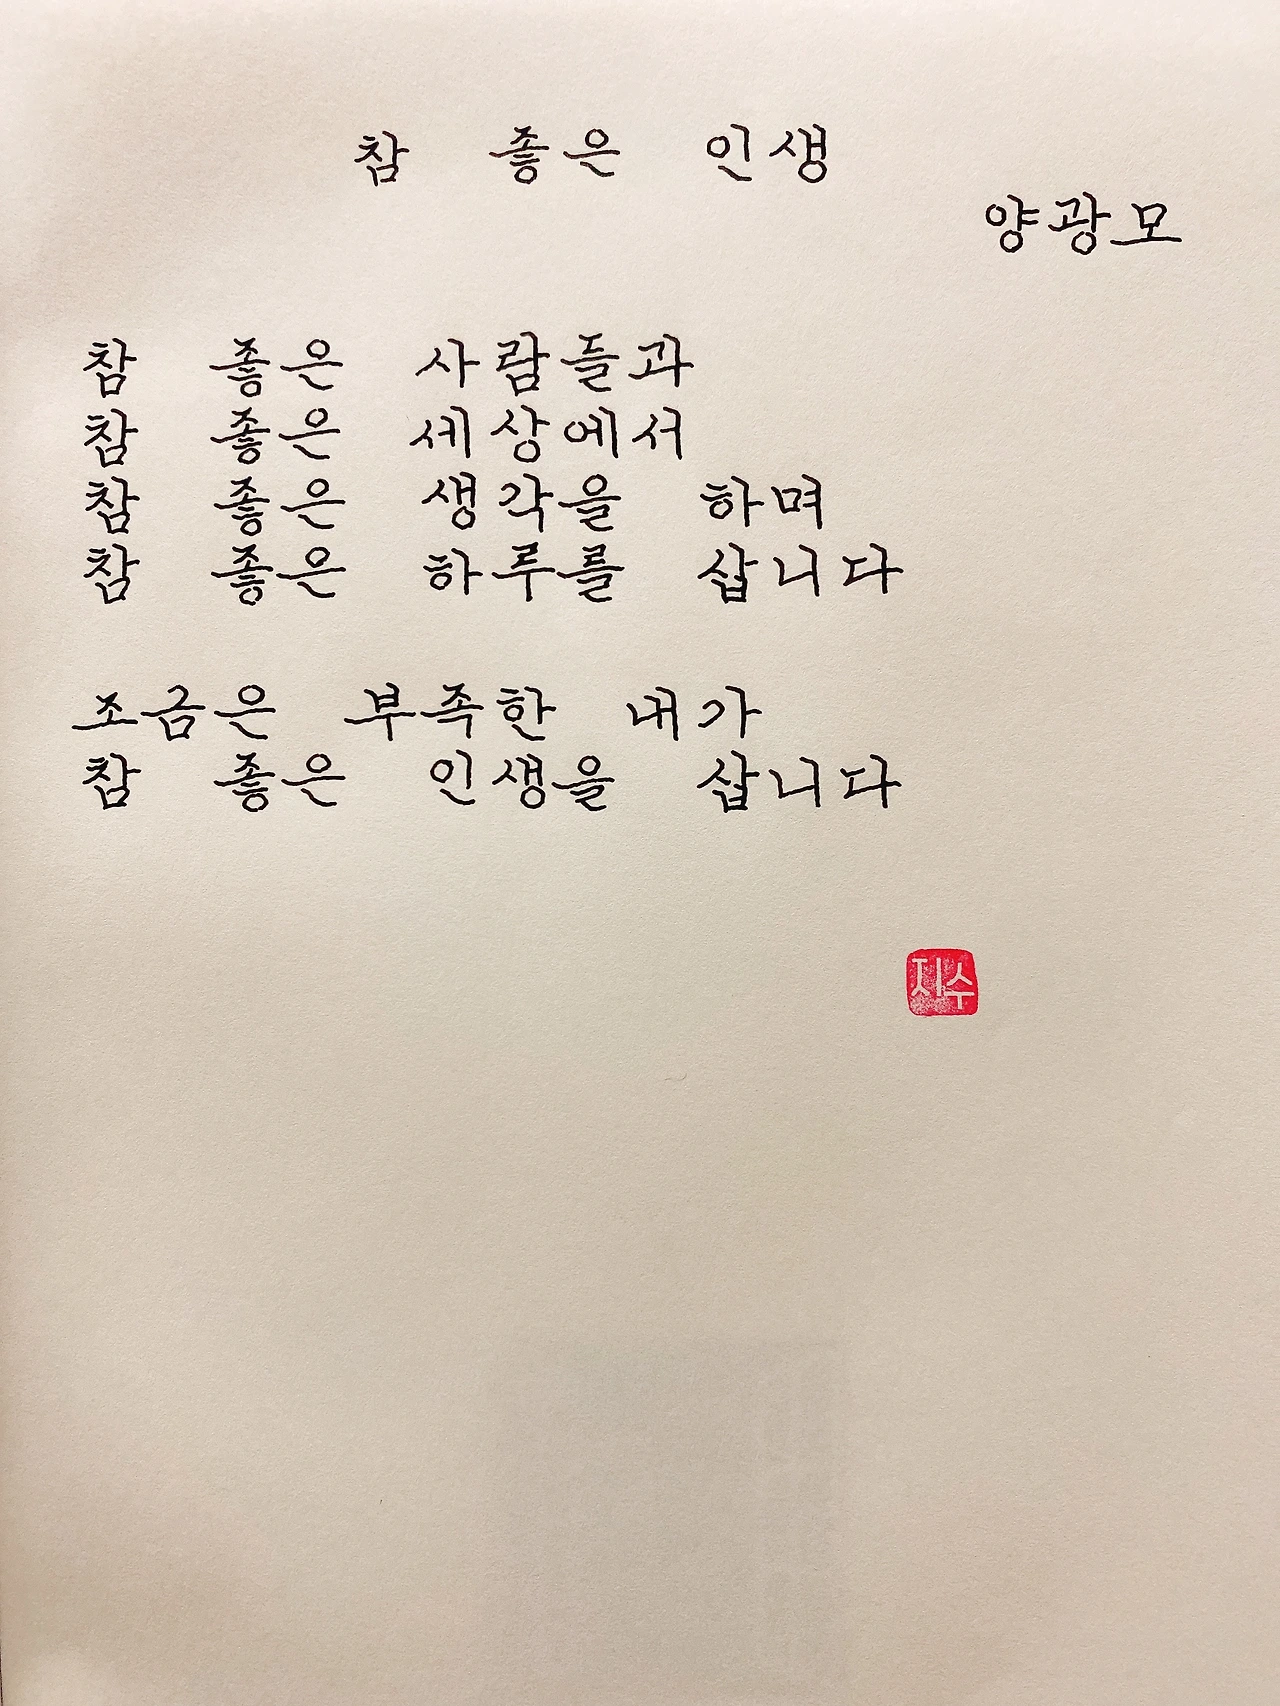 참 좋은 인생
양광모
참 좋은 사람들과
참 좋은 세상에서
참 좋은 생각을 하며
참 좋은 하루를 삽니다
조금은 부족한 내가
참 좋은 인생을 삽니다
지수